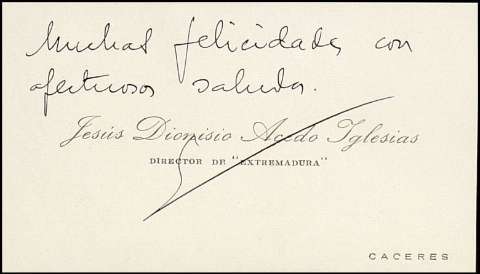 Muchas felicidades con
afectuosos saludos.
Jesús Dionisio Acedo Iglesias
DIRECTOR DE "EXTREMADURA"
CACERES